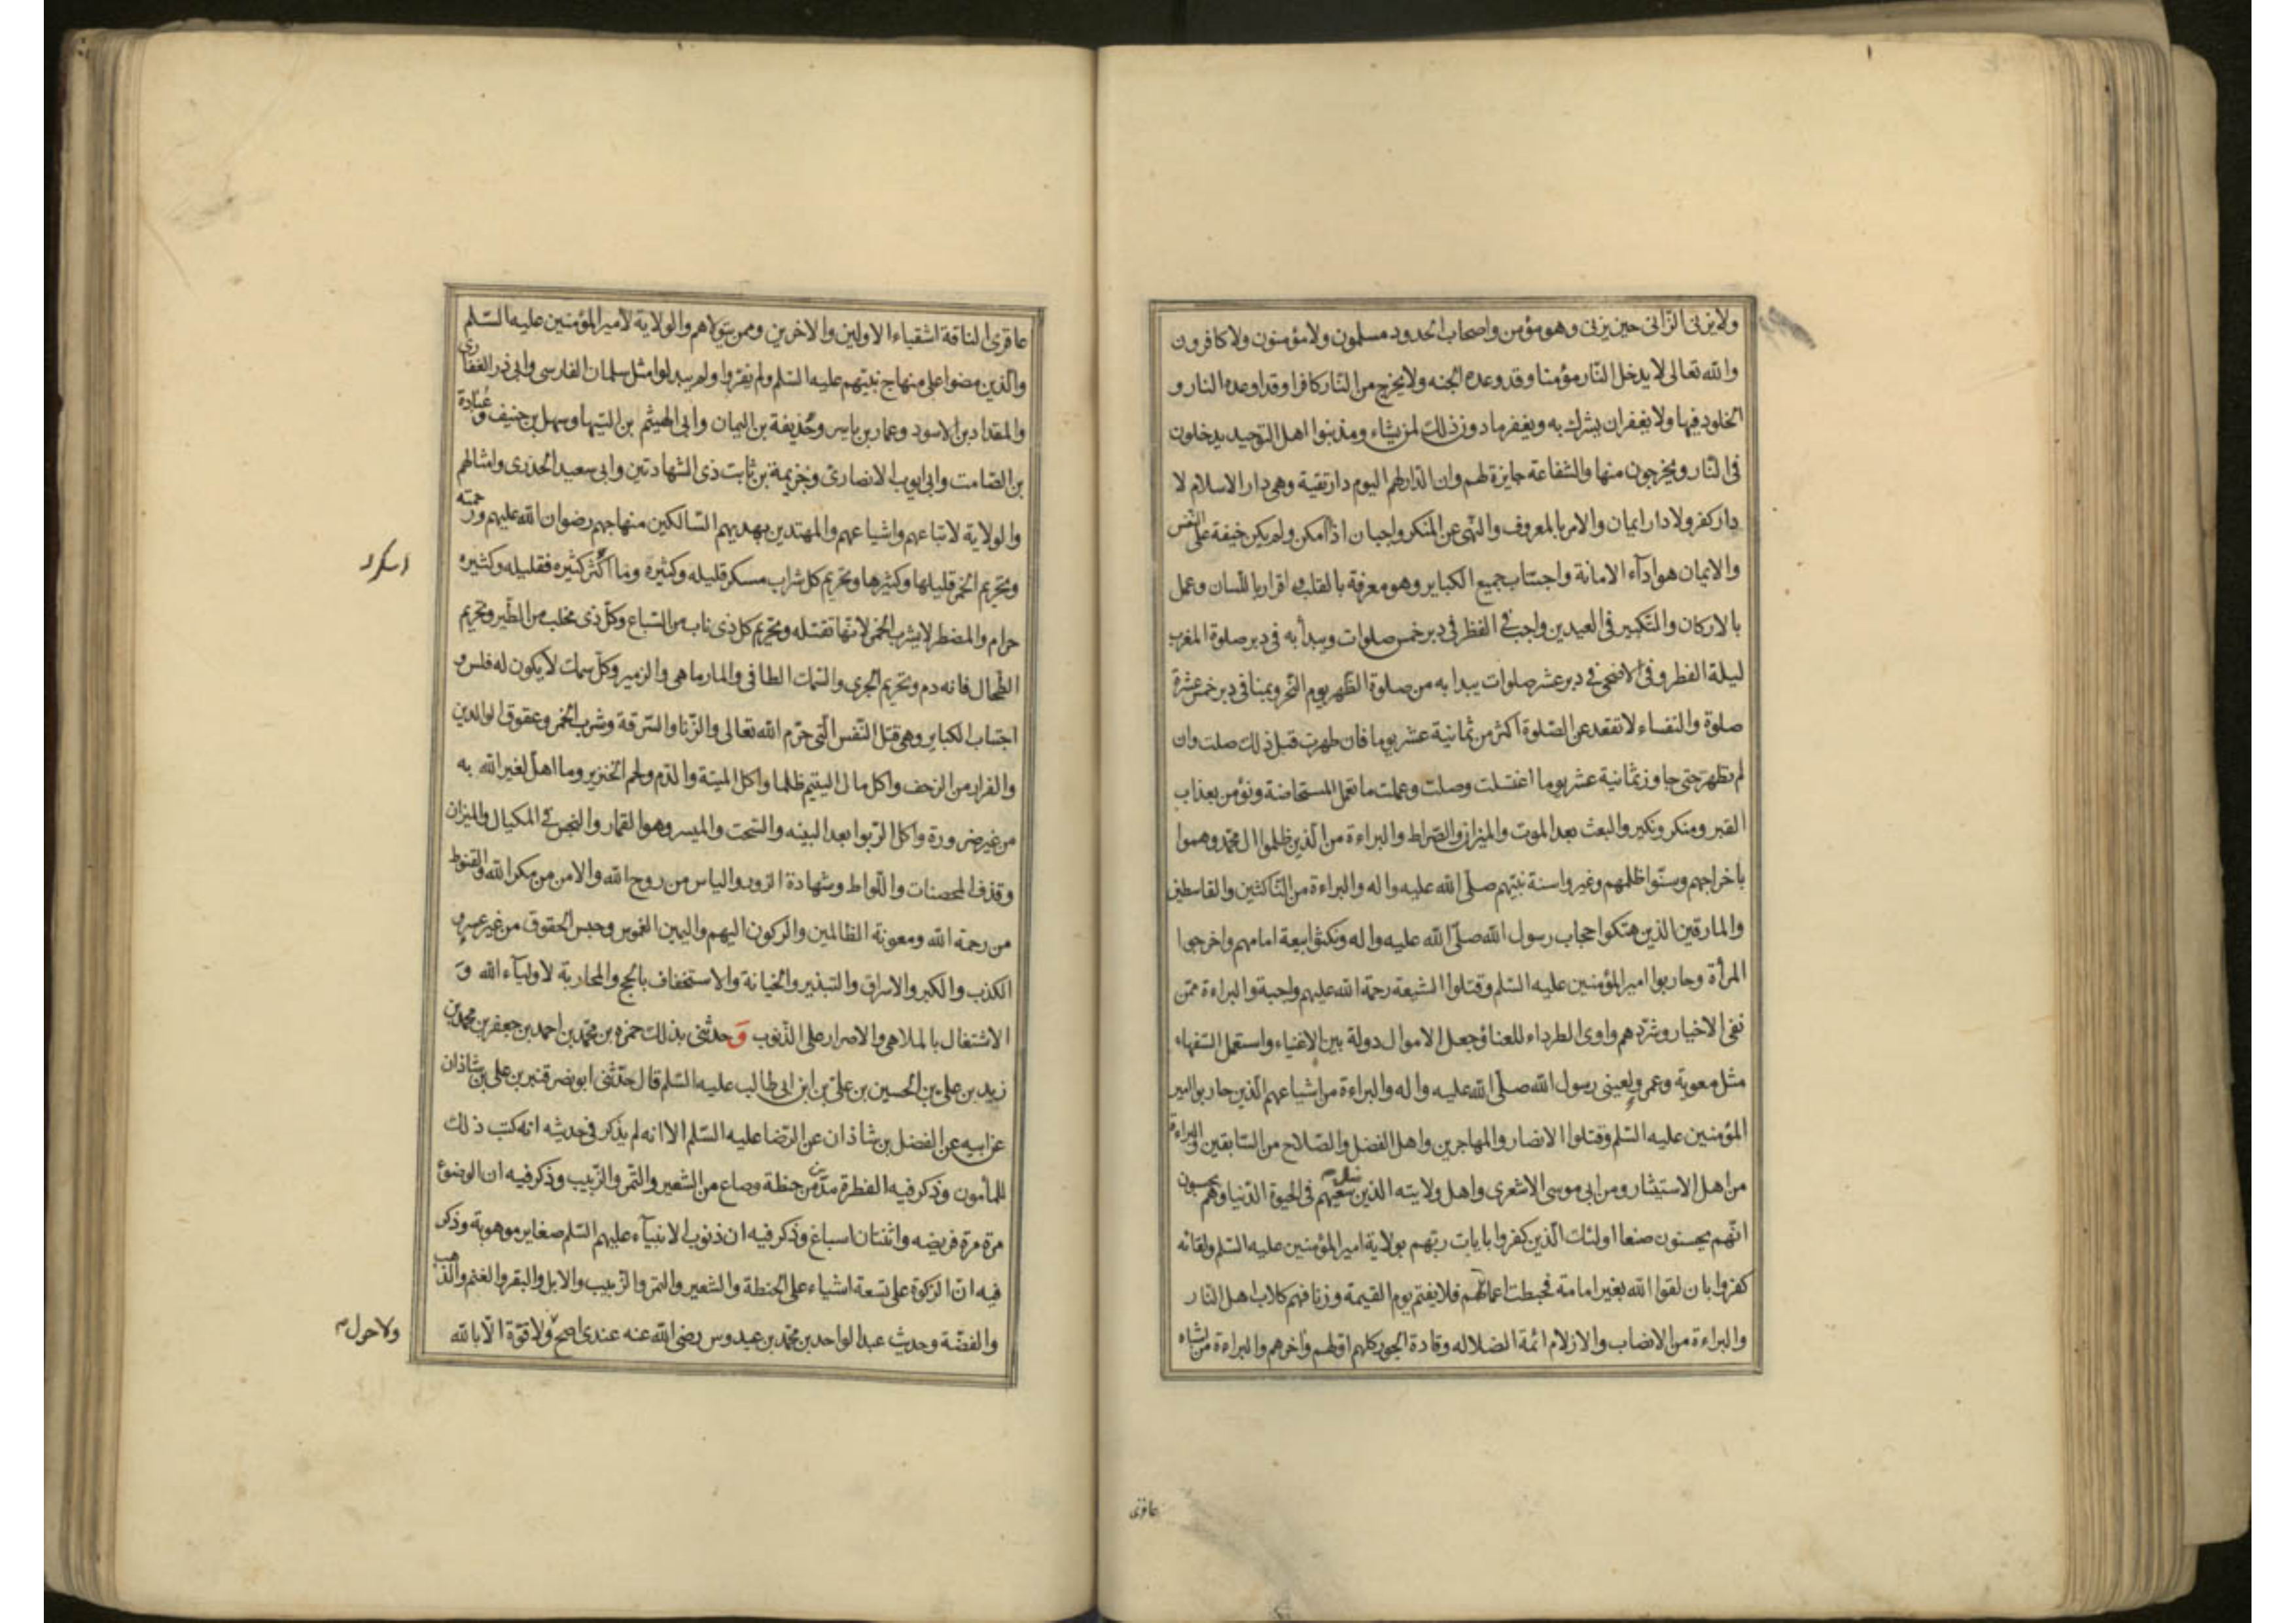 ولا يزنى الزانى حين يزنى وهو مؤمن واصحاب الحدود مسلمون ولا مؤمنون ولا كافرون
والله تعالى لا يدخل النار مؤمنا وقد وعده الجنه ولا يخرج من النار كافرا وقد اوعده النار و
الخلود فيها ولا يغفر ان يشرك به ويغفر ما دون ذلك لمن يشاء ومذنبوا اهل التوحيد يدخلون
فى النار ويخرجون منها والشفاعة جايزة لهم وان الدار لهم اليوم دار تقية وهى دار الاسلام لا
دار كفر ولا دار ايمان والامر بالمعروف والنهى عن المنكر واجبان اذا امكن ولم يكن خيفة على النفس
والايمان هو اداء الامانة واجتناب جميع الكباير وهو معرفة بالقلب اقرار باللسان وعمل
بالاركان والتكبير فى العيدين واجب فى الفطر فى دبر خمس صلوات ويبدأ به فى دبر صلوة المغرب
ليلة الفطر وفى الاضحى فى دبر عشر صلوات يبدا به من صلوة الظهر يوم النحر وبمنا فى دبر خمس عشرة
صلوة والنفساء لا تقعد عن الصلوة اكثر من ثمانية عشر يوما فان طهرت قبل ذلك صلت وان
لم تطهر حتى جاوز ثمانية عشر يوما اغتسلت وصلت وعملت ما تعمل المستحاضة ونؤمن بعذاب
القبر ومنكر ونكير والبعث بعد الموت والميزان والصراط والبراءة من الذين ظلموا ال محمد وهموا
باخراجهم وسنوا ظلمهم وغيروا سنة نبيهم صلى الله عليه واله والبراءة من الناكثين والقاسطين
والمارقين الذين هتكوا حجاب رسول الله صلى الله عليه واله ونكثوا بيعة امامهم واخرجوا
المرأة وحاربوا امير المؤمنين عليه السلم وقتلوا الشيعة رحمة الله عليهم واجبة والبراءة ممن
نفى الاخيار وشردهم واوى الطرداء للعنا وجعل الاموال دولة بين الاغنياء واستعمل السفهاء
مثل معوية وعمرو لعينى رسول الله صلى الله عليه واله والبراءة من اشياعهم الذين حاربوا امير
المؤمنين عليه السلم وقتلوا الانصار والمهاجرين واهل الفضل والصلاح من السابقين والبراءة
من اهل الاستيثار ومن ابى موسى الاشعرى واهل ولايته الذين ضل سعيهم فى الحيوة الدنيا وهم يحسبون
انهم يحسنون صنعا اولئك الذين كفروا بايات ربهم بولاية امير المؤمنين عليه السلم ولقائه
كفروا بان لقوا الله بغير امامة فحبطت اعمالهم فلا يقيم يوم القيمة وزنا فهم كلاب اهل النار
والبراءة من الانصاب والازلام ائمة الضلاله وقادة الجور كلهم اولهم واخرهم والبراءة من اشباه
عاقرى
عاقرى الناقة اشقياء الاولين والاخرين وممن يتولاهم والولاية لامير المؤمنين عليه السلم
والذين مضوا على منهاج نبيهم عليه السلم ولم يغيروا ولم يبدلوا مثل سلمان الفارسى وابى ذر الغفارى
والمقداد بن الاسود وعمار بن ياسر وحذيفة بن اليمان وابى الهيثم بن التيهان وسهل بن حنيف وعبادة
بن الصامت وابى ايوب الانصارى وخزيمة بن ثابت ذى الشهادتين وابى سعيد الخدرى وامثالهم
والولاية لاتباعهم واشياعهم والمهتدين بهديهم السالكين منهاجهم رضوان الله عليهم ورحمته
وتحريم الخمر قليلها وكثيرها وتحريم كل شراب مسكر قليله وكثيره وما اكثر كثيره فقليله وكثيره
اسكر
حرام والمضطر لا يشرب الخمر لانها تقتله وتحريم كل ذى ناب من السباع وكل ذى مخلب من الطير وتحريم
الطحال فانه دم وتحريم الجرى والسمك الطافى والمارماهى والزمير وكل سمك لا يكون له فلس و
اجتناب الكباير وهى قتل النفس التى حرم الله تعالى والزنا والسرقة وشرب الخمر وعقوق الوالدين
والفرار من الزحف واكل مال اليتيم ظلما واكل الميتة والدم ولحم الخنزير وما اهل لغير الله به
من غير ضرورة واكل الربوا بعد البينه والسحت والميسر وهو القمار والبخس فى المكيال والميزان
وقذف المحصنات واللواط وشهادة الزور والياس من روح الله والامن من مكر الله والقنوط
من رحمة الله ومعونة الظالمين والركون اليهم واليمين الغموس وحبس الحقوق من غير عسر و
الكذب والكبر والاسراف والتبذير والخيانة والاستخفاف بالحج والمحاربة لاولياء الله و
الاشتغال بالملاهى والاصرار على الذنوب و حدثنى بذلك حمزه بن محمد بن احمد بن جعفر بن محمد بن
زيد بن على بن الحسين بن على بن ابى طالب عليه السلم قال حدثنى ابو نصر قنبر بن على بن شاذان
عن ابيه عن الفضل بن شاذان عن الرضا عليه السلم الا انه لم يذكر فى حديثه انه كتب ذلك
للمأمون وذكر فيه الفطرة مدين من حنطة وصاع من الشعير والتمر والزبيب وذكر فيه ان الوضوء
مرة مرة فريضه واثنتان اسباغ وذكر فيه ان ذنوب الانبياء عليهم السلم صغاير موهوبة وذكر
فيه ان الزكوة على تسعة اشياء على الحنطة والشعير والتمر والزبيب والابل والبقر والغنم والذهب
والفضة وحديث عبد الواحد بن محمد بن عبدوس رضى الله عنه عندى اصح ولا قوة الا بالله
ولا حول